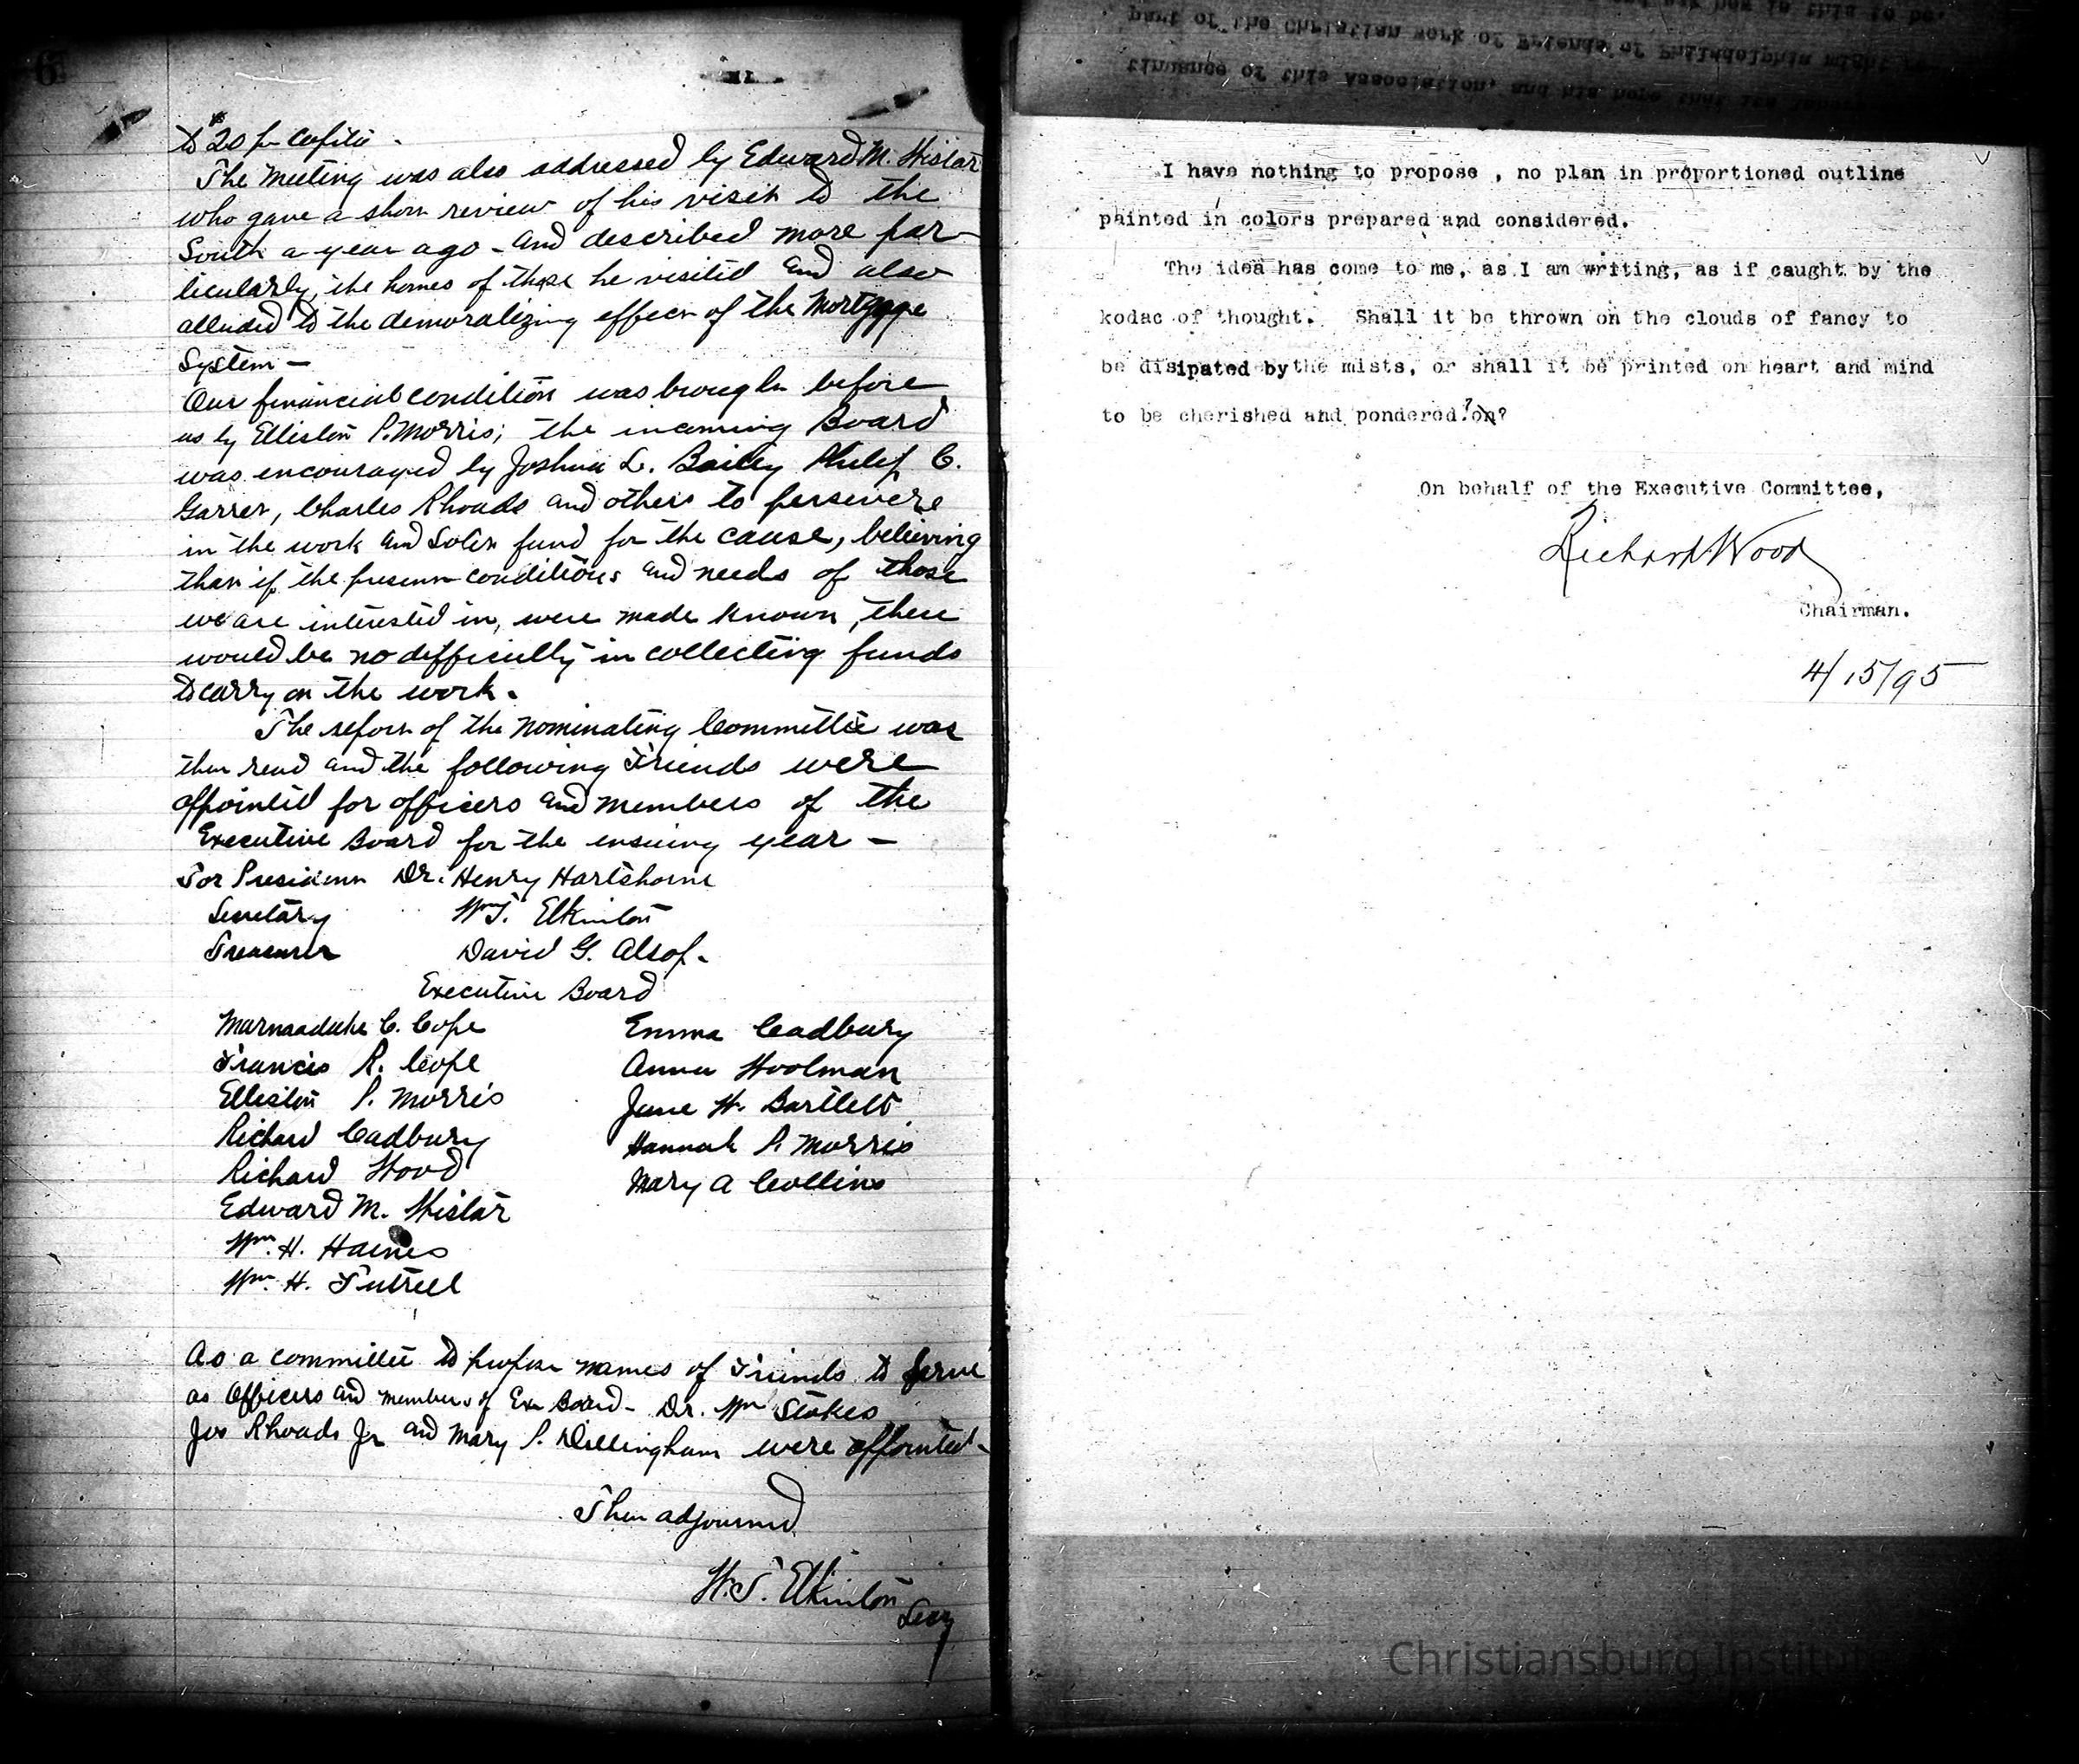 6
to $20 pr Capita.
The meeting was also addressed by Edward M. Wistar
who gave a short review of his visit to the
South a year ago - and described more par-
ticularly, the homes of those he visited and also
alluded to the demoralizing effect of the Mortgage
System -
Our financial condition was brought before
us by Elliston P. Morris; the incoming Board
was encouraged by Joshua L. Baily Philip C.
Garrett, Charles Rhoads and others to persevere
in the work and Solicit fund for the cause, believing
that if the present conditions and needs of those
we are interested in, were made known, there
would be no difficulty in collecting funds
to carry on the work.
The report of the Nominating Committee was
then read and the following Friends were
appointed for officers and members of the
Executive Board for the ensuing year -
For President Dr. Henry Hartshorne
Secretary Wm T. Elkinton
Treasurer David G. Alsop.
Executive Board
Marmaduke C. Cope
Francis R. Cope
Elliston P. Morris
Richard Cadbury
Richard Wood
Edward M. Wistar
Wm. H. Haines
Wm. H. Futrell
Emma Cadbury
Anna Woolman
Jane W. Bartlett
Hannah P. Morris
Mary A Collins
As a committee to propose names of Friends to serve
as Officers and members of Ex Board - Dr. Wm Stokes
Jos Rhoads Jr and Mary P. Dillingham were appointed -
Then adjourned
W. T. Elkinton
Secy
part of the Christian work of Friends of Philadelphia might
tinuance of this Association, and his hope that its
I have nothing to propose , no plan in proportioned outline
painted in colors prepared and considered.
The idea has come to me, as I am writing, as if caught by the
kodac of thought. Shall it be thrown on the clouds of fancy to
be disipated by the mists, or shall it be printed on heart and mind
to be cherished and pondered? on?
On behalf of the Executive Committee,
Richard Wood
Chairman.
4/15/95
Christiansburg Institute